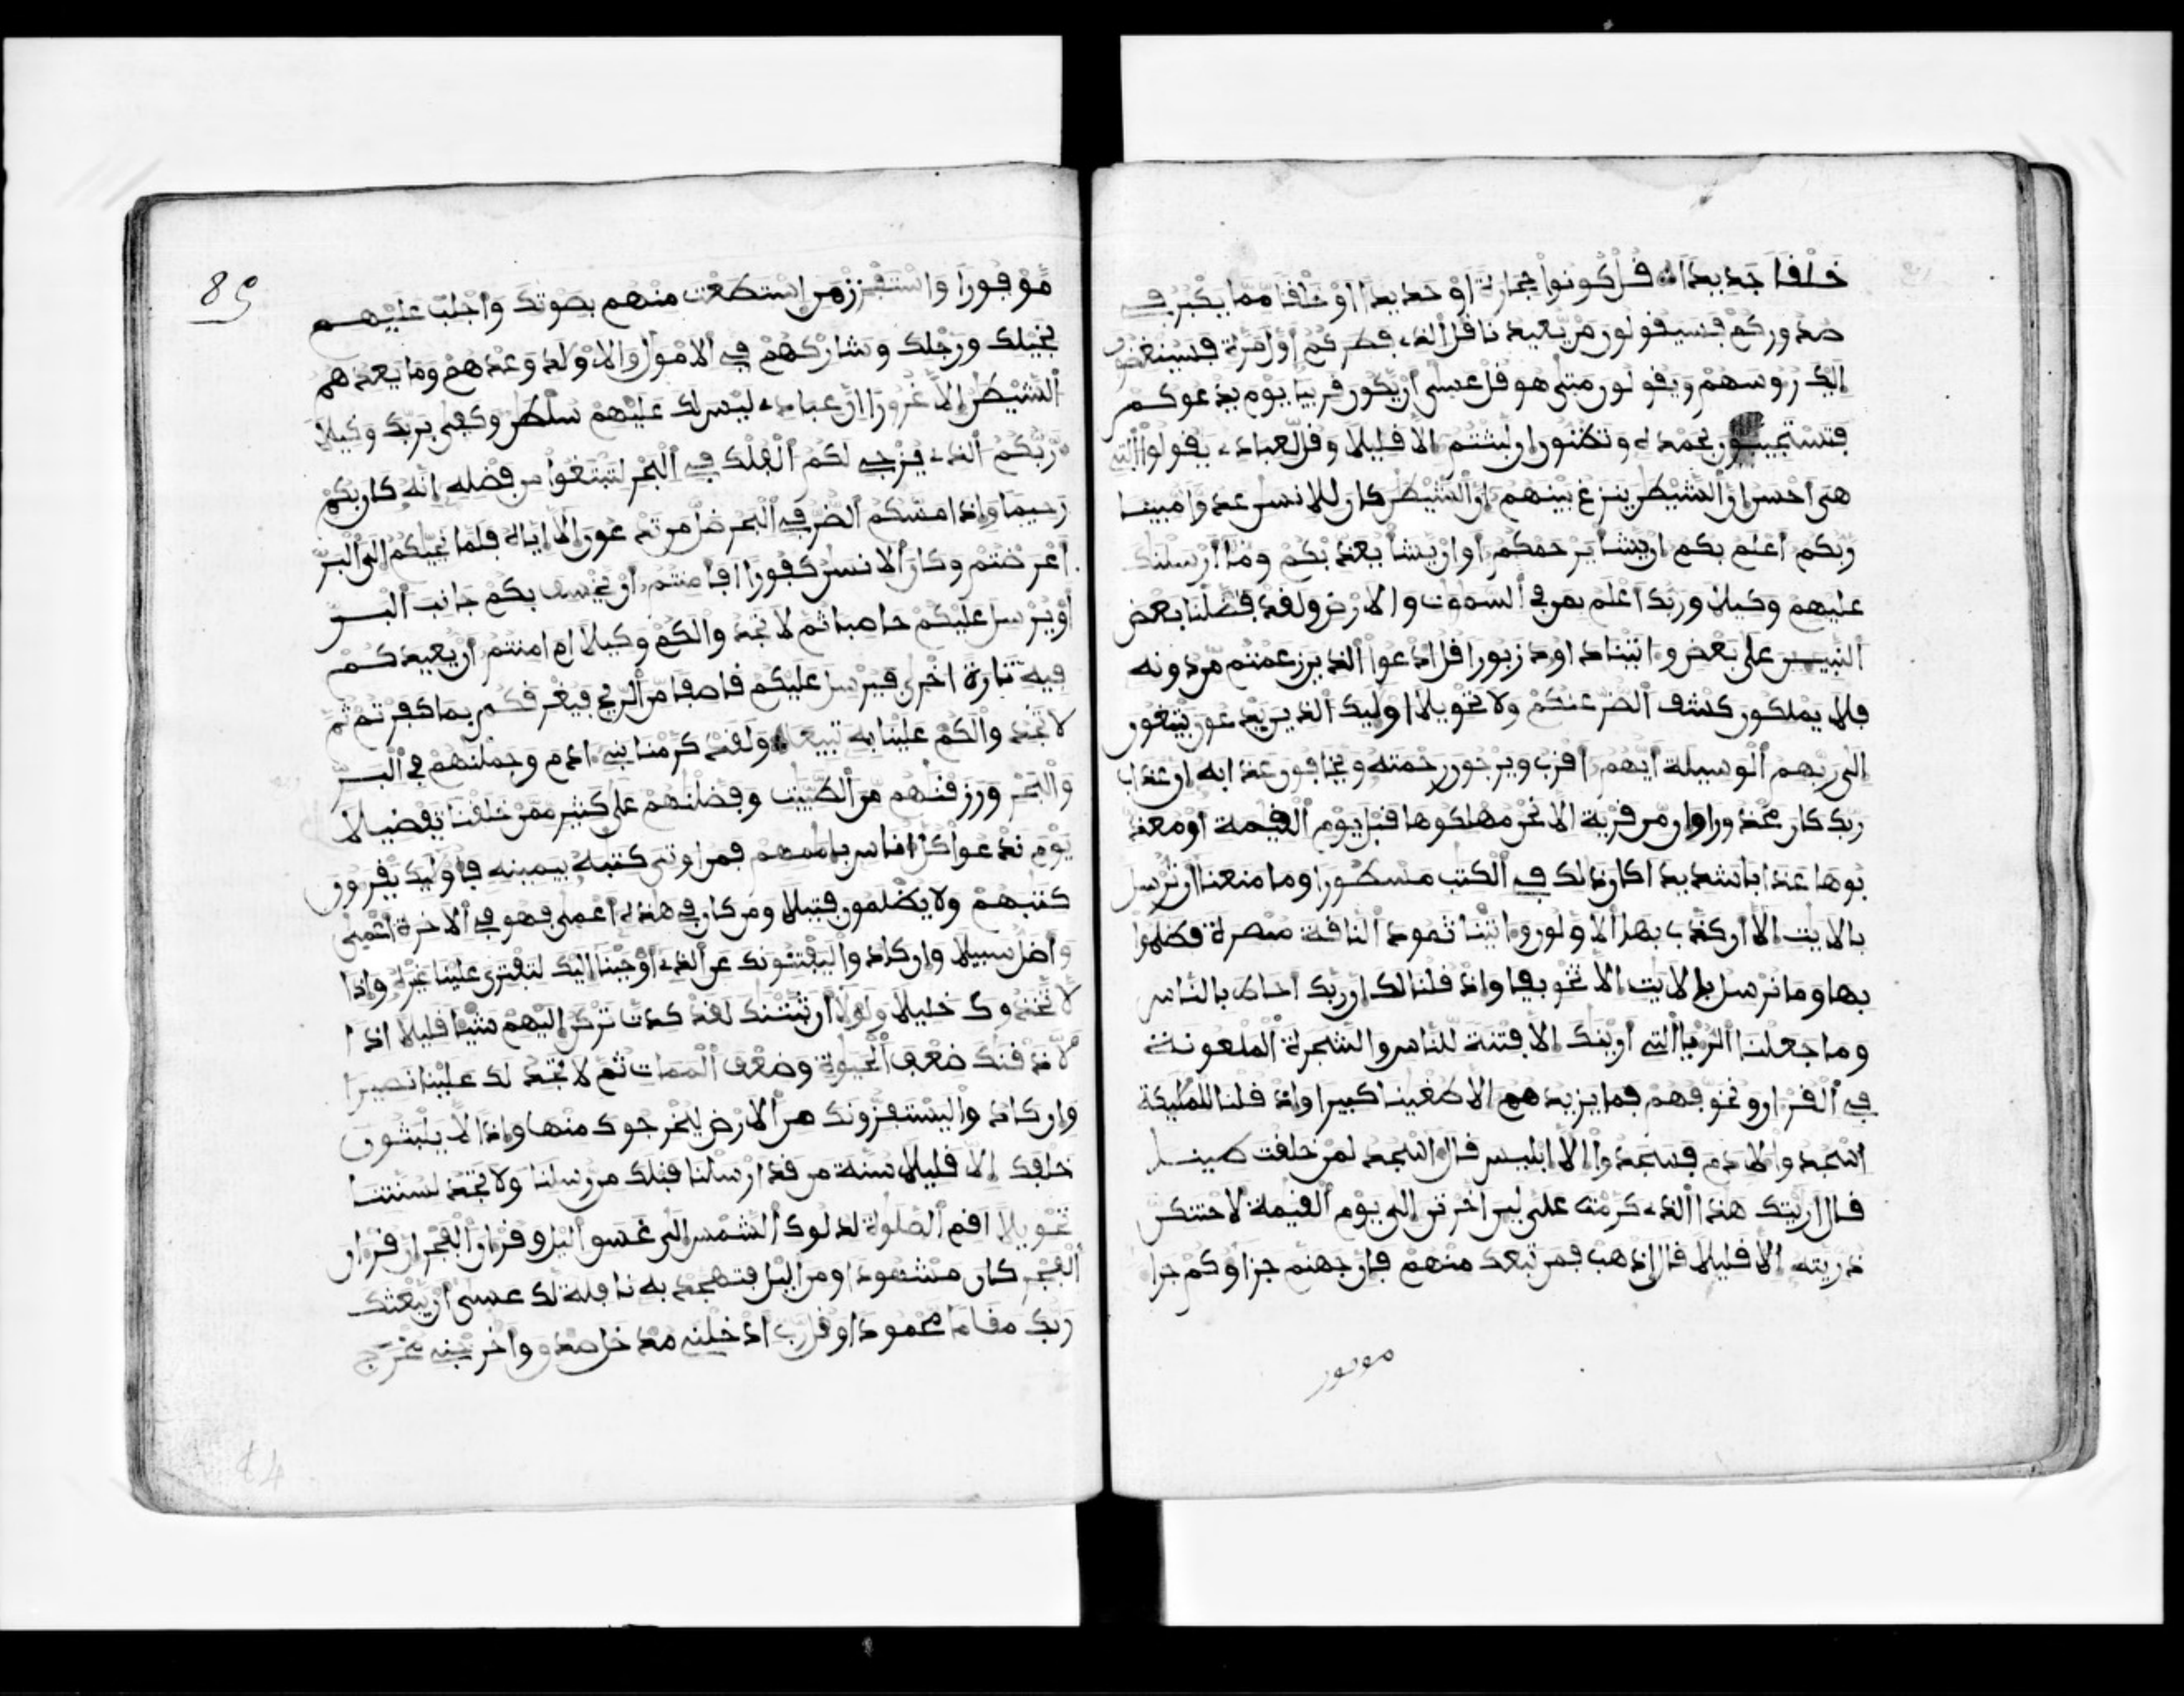 خلقا جديدا قل كونوا حجارة او حديدا او خلقا مما يكبر في
صدوركم فسيقولون من يعيدنا قل الذي فطركم اول مرة فسينغضون
اليك روسهم ويقولون متى هو قل عسى ان يكون قريبا يوم يدعوكم
فتستجيبون بحمده وتظنون ان لبثتم الا قليلا وقل لعبادي يقولوا التي
هي احسن ان الشيطن ينزغ بينهم ان الشيطن كان للانسن عدوا مبينا
ربكم اعلم بكم ان يشا يرحمكم او ان يشا يعذبكم وما ارسلنك
عليهم وكيلا وربك اعلم بمن في السموت والارض ولقد فضلنا بعض
النبيين على بعض واتينا داود زبورا قل ادعوا الذين زعمتم من دونه
فلا يملكون كشف الضر عنكم ولا تحويلا اوليك الذين يدعون يبتغون
الى ربهم الوسيلة ايهم اقرب ويرجون رحمته ويخافون عذابه ان عذاب
ربك كان محذورا وان من قرية الا نحن مهلكوها قبل يوم القيمة او معذ
بوها عذابا شديدا كان ذلك في الكتب مسطورا وما منعنا ان نرسل
بالايت الا ان كذب بها الاولون واتينا ثمود الناقة مبصرة فظلموا
بها وما نرسل بالايت الا تخويفا واذ قلنا لك ان ربك احاط بالناس
وما جعلنا الريا التي ارينك الا فتنة للناس والشجرة الملعونة
في القران ونخوفهم فما يزيدهم الا طغينا كبيرا واذ قلنا للمليكة
اسجدوا لادم فسجدوا الا ابليس قال اسجد لمن خلقت طينا
قال اريتك هذا الذي كرمت علي لين اخرتن الى يوم القيمة لاحتنكن
ذريته الا قليلا قال اذهب فمن تبعك منهم فان جهنم جزاوكم جزا
موفور
89
موفورا واستفزز من استطعت منهم بصوتك واجلب عليهم
بخيلك ورجلك وشاركهم في الامول والاولد وعدهم وما يعدهم
الشيطن الا غرورا ان عبادي ليس لك عليهم سلطن وكفى بربك وكيلا
ربكم الذي يزجي لكم الفلك في البحر لتبتغوا من فضله انه كان بكم
رحيما واذا مسكم الضر في البحر ضل من تدعون الا اياه فلما نجيكم الى البر
اعرضتم وكان الانسن كفورا افامنتم ان يخسف بكم جانب البر
او يرسل عليكم حاصبا ثم لا تجدوا لكم وكيلا ام امنتم ان يعيدكم
فيه تارة اخرى فيرسل عليكم قاصفا من الريح فيغرقكم بما كفرتم ثم
لا تجدوا لكم علينا به تبيعا ولقد كرمنا بني ادم وحملنهم في البر
والبحر ورزقنهم من الطيبت وفضلنهم على كثير ممن خلقنا تفضيلا
يوم ندعوا كل اناس باممهم فمن اوتي كتبه بيمينه فاوليك يقرون
كتبهم ولا يظلمون فتيلا ومن كان في هذه اعمى فهو في الاخرة اعمى
واضل سبيلا وان كادوا ليفتنونك عن الذي اوحينا اليك لتفتري علينا غيره واذا
لاتخذوك خليلا ولولا ان ثبتنك لقد كدت تركن اليهم شيا قليلا اذا
لاذقنك ضعف الحيوة وضعف الممات ثم لا تجد لك علينا نصيرا
وان كادوا ليستفزونك من الارض ليخرجوك منها واذا لا يلبثون
خلفك الا قليلا سنة من قد ارسلنا قبلك من رسلنا ولا تجد لسنتنا
تحويلا اقم الصلوة لدلوك الشمس الى غسق اليل وقران الفجر ان قران
الفجر كان مشهودا ومن اليل فتهجد به نافلة لك عسى ان يبعثك
ربك مقاما محمودا وقل رب ادخلني مدخل صدق واخرجني مخرج